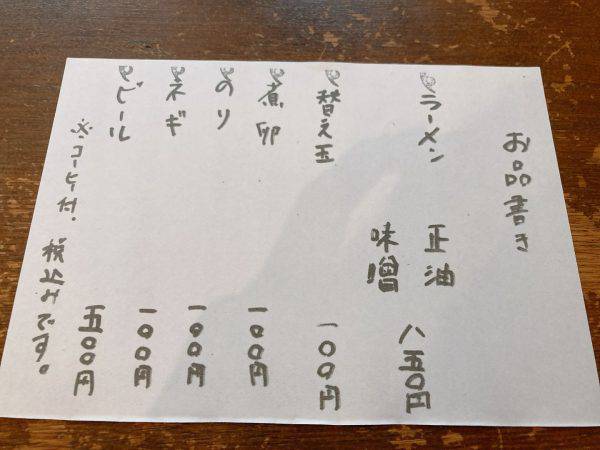 お品書き
ラーメン 正油 八五〇円
味噌
替え玉 一〇〇円
煮卵 一〇〇円
のり 一〇〇円
ネギ 一〇〇円
ビール 五〇〇円
※コーヒー付、税込みです。